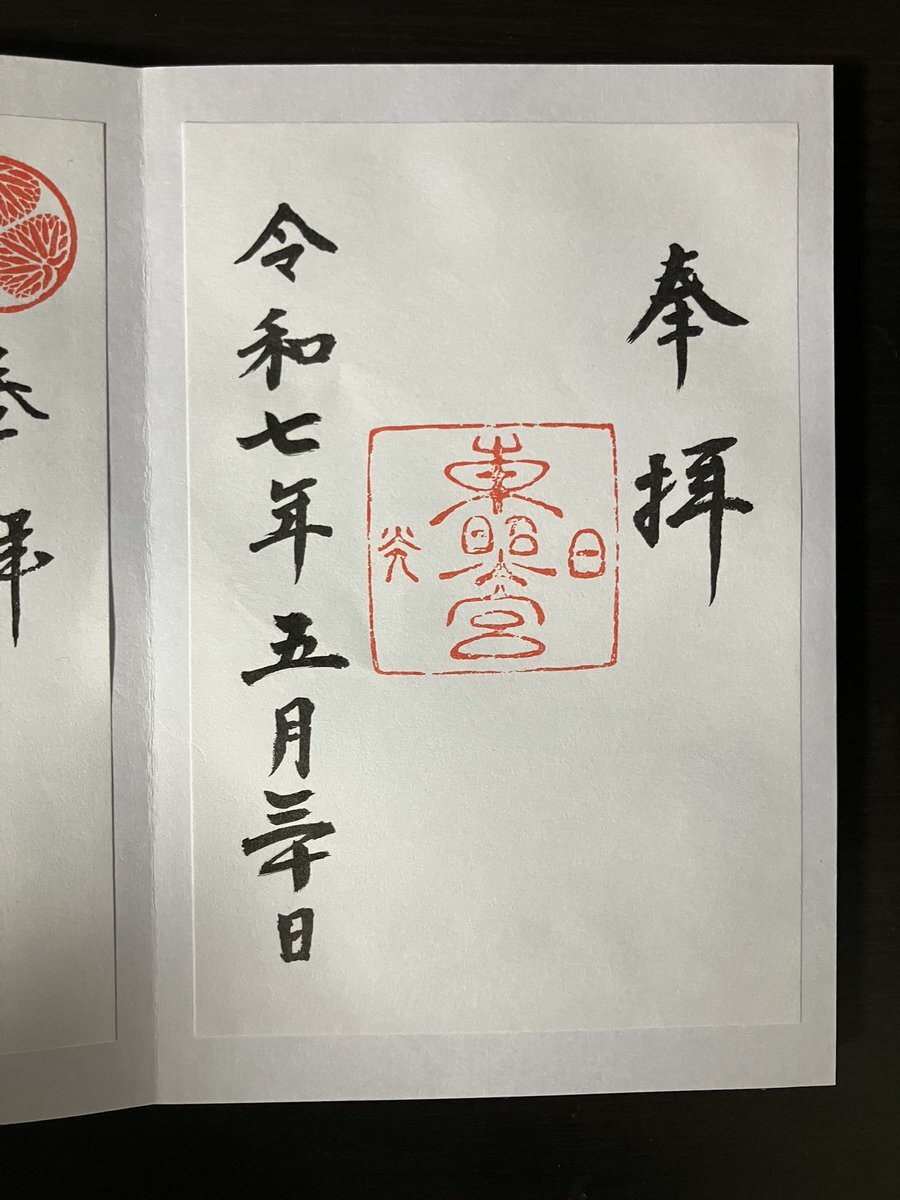 奉拝
日光
東照宮
令和七年五月三十日
拝